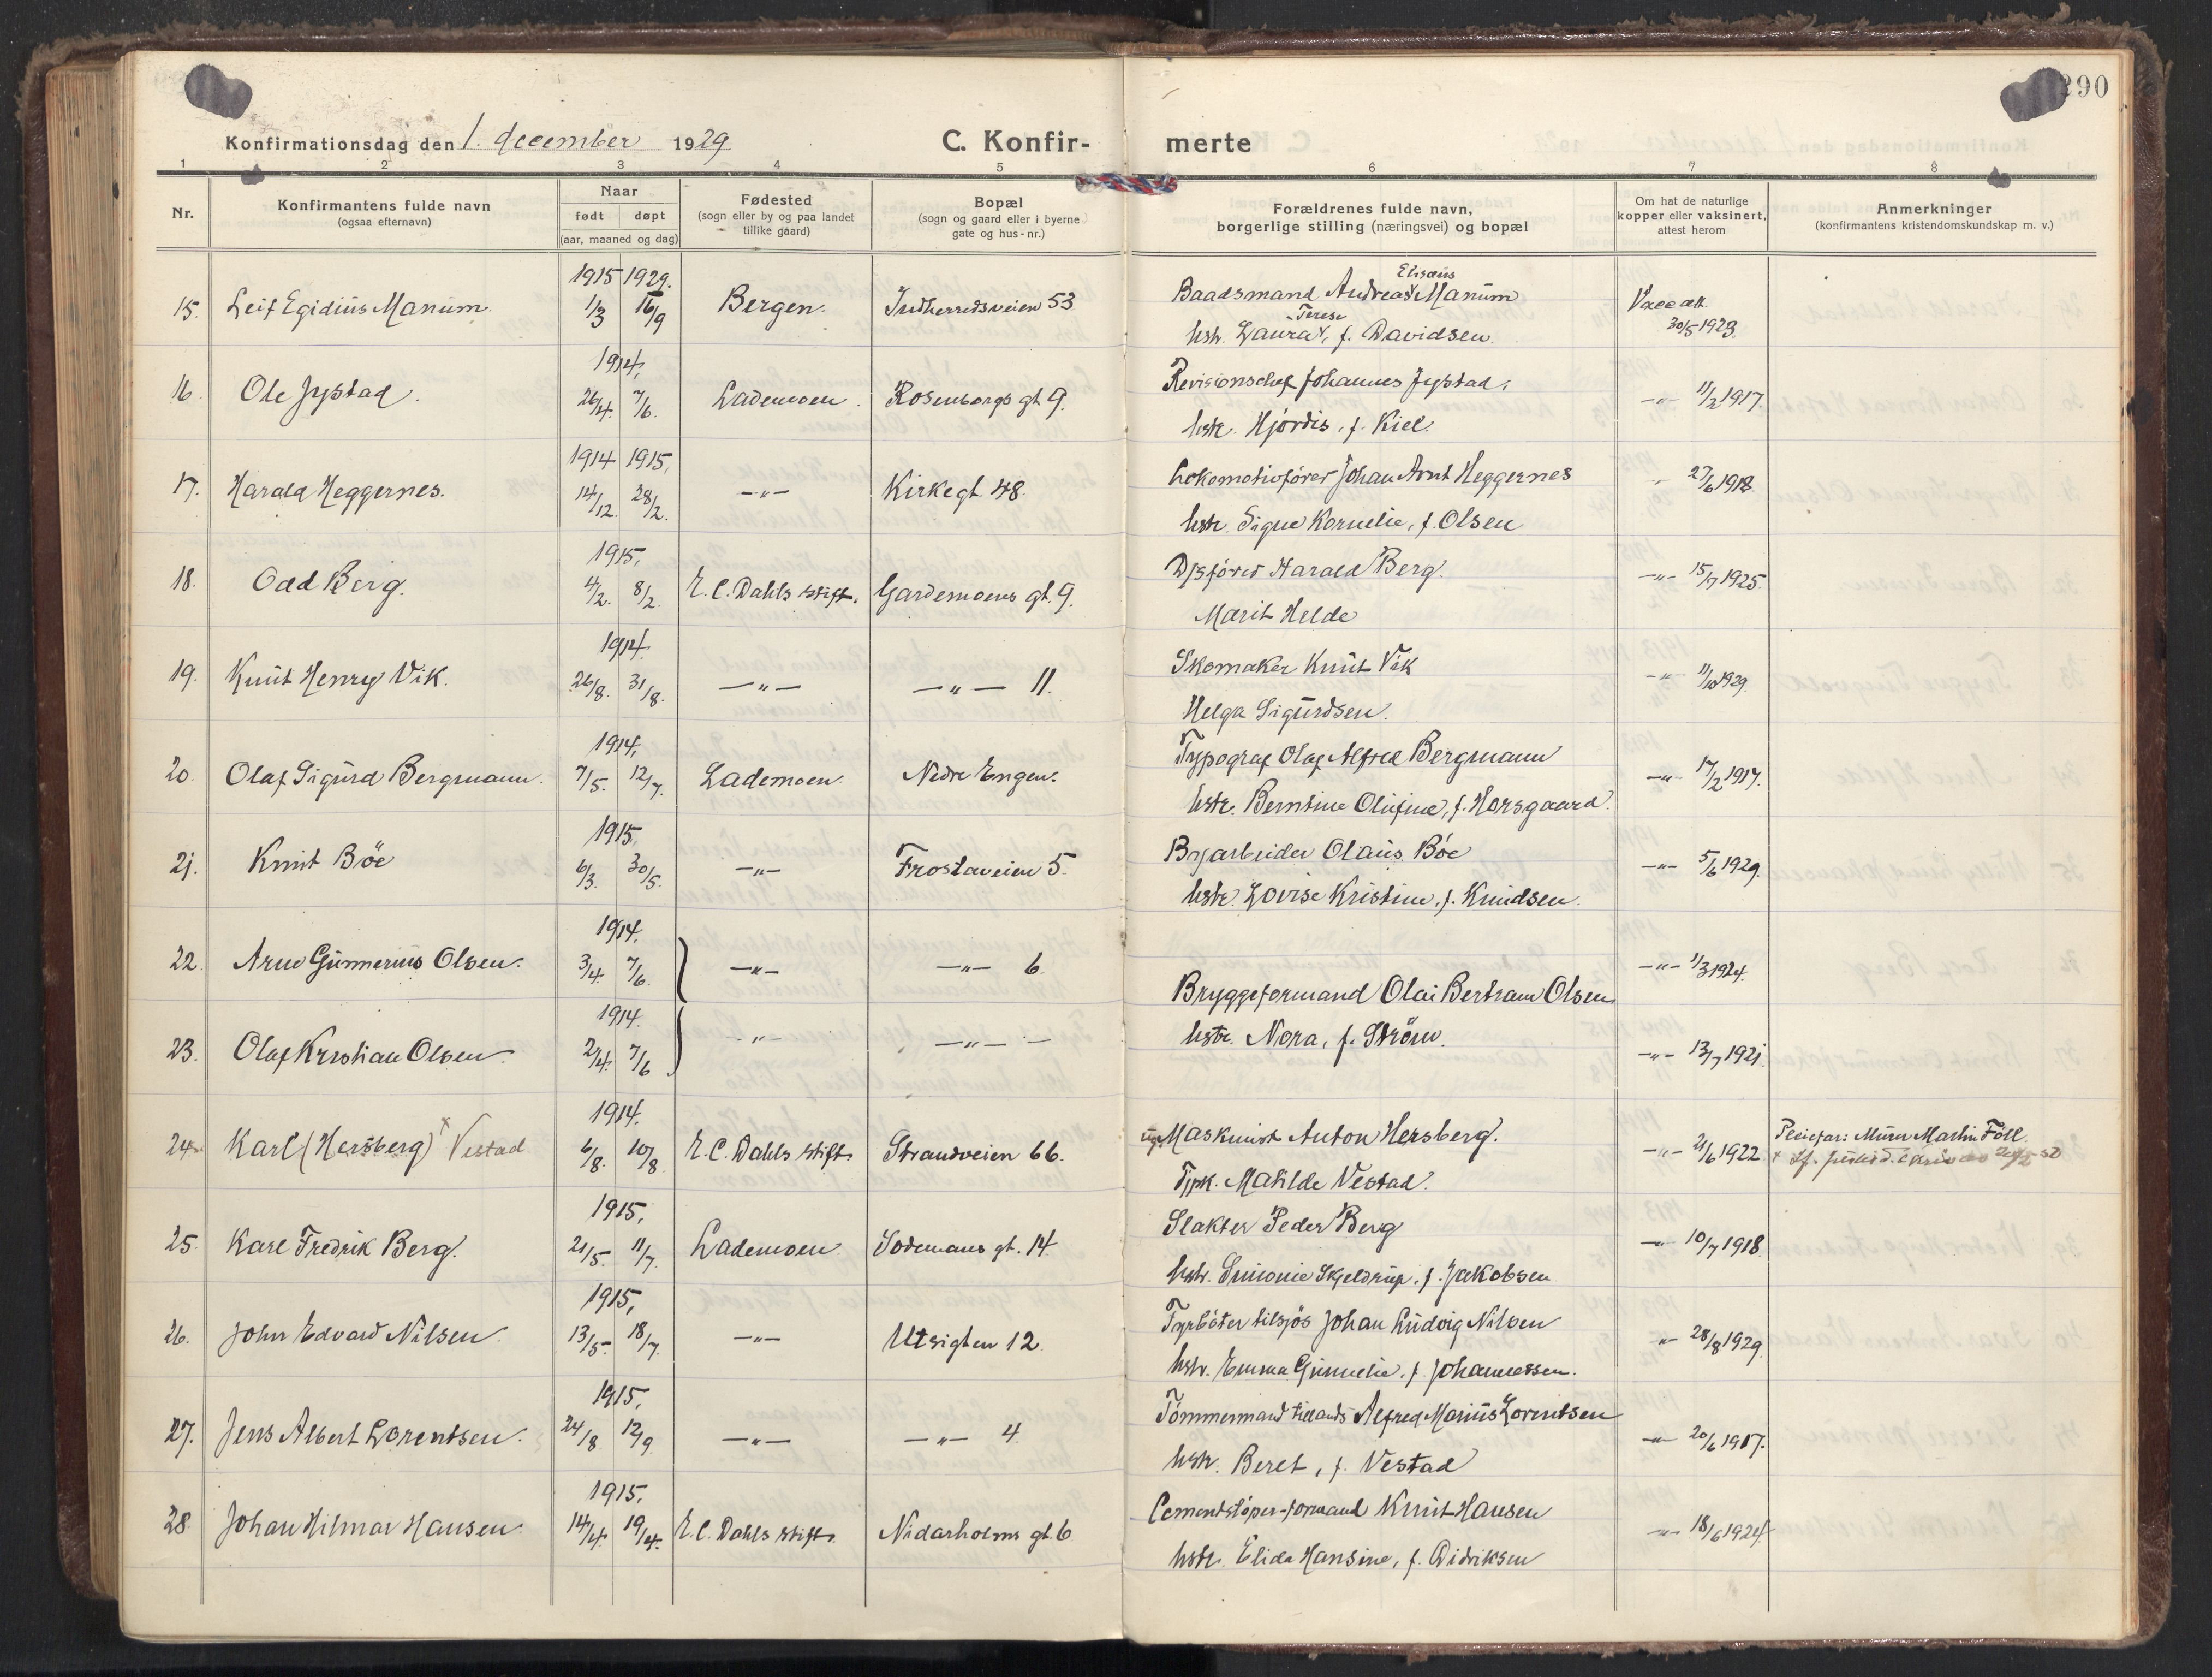 290
Konfirmationsdag den 1. december 1929 C. Konfir- merte
1 2 3 4 5 6 7 8
Nr. Konfirmantens fulde navn (ogsaa efternavn) Naar født døpt (aar, maaned og dag) Fødested (sogn eller by og paa landet tillike gaard) Bopæl (sogn og gaard eller i byerne gate og hus-nr.) Forældrenes fulde navn, borgerlige stilling (næringsvei) og bopæl Om hat de naturlige kopper eller vaksinert, attest herom Anmerkninger (konfirmantens kristendomskundskap m. v.)
1915 1929. Elisæus
15. Leif Egidius Manum 1/3 16/9 Bergen. Indherredsveien 53 Baadsmand Andreas Manum Vacc. att. 30/5 1923
Terese
hstr. Laura, f. Davidsen.
1914,
16. Ole Jystad. 26/4. 7/6. Lademoen. Rosenborgs gt 9. Revisionschef Johannes Jystad. -"- 11/2 1917.
hstr. Hjørdis, f. Kiel.
1914 1915,
17. Harald Heggernes. 14/12. 28/2. -"- Kirkegt 48. Lokomotivfører Johan Arnt Heggernes 27/6 1918.
hstr. Signe Kornelie, f. Olsen
1915,
18. Odd Berg. 4/2. 8/2. E. C. Dahls stift. Gardemoens gt. 9. D/sfører Harald Berg. -"- 15/7 1925.
Marit Helde
1914.
19. Knut Henry Vik. 26/8. 31/8. -"- -"- 11. Skomaker Knut Vik -"- 11/10 1929.
Helga Sigurdsen.
1914,
20. Olaf Sigurd Bergmann. 7/5. 12/7. Lademoen. Nedre Engen. Typograf Olaf Alfred Bergmann -"- 17/2 1917.
hstr. Berntine Olufine, f. Horsgaard.
1915,
21. Knut Böe 6/3. 30/5. -"- Frostaveien 5. Bryarbeider Olaus Böe -"- 5/6 1929.
hstr. Lovise Kristine, f. Knudsen.
1914.
22. Arne Gunnerius Olsen. 3/4. 7/6. -"- -"- 6. -"- 1/3 1924.
Bryggeformand Olai Bertram Olsen
1914.
23. Olaf Kristian Olsen 2/4. 7/6 -"- -"- - hstr. Nora, f. Ström. -"- 13/7 1921.
1914.
24. Karl (Hersberg) x Vestad 6/8. 10/8 E. C. Dahls stift. Strandveien 66. ug. Maskinist Anton Hersberg. -"- 21/6 1922 Pleiefar: Murer Martin Foll.
Tjpk. Matilde Vestad.
1915,
25. Karl Fredrik Berg. 21/5. 11/7. Lademoen Sodemans gt. 14. Slakter Peder Berg -"- 10/7 1918
hstr. Simonie Skjeldrup, f. Jakobsen
1915,
26. John Edvard Nilsen. 13/5. 18/7. -"- Utsigten 12. Fyrbøter tilsjøs Johan Ludvig Nilsen -"- 28/8 1929.
hstr. Emma Gunnelie, f. Johannessen.
1915,
27. Jens Albert Lorentsen. 24/8 12/9 -"- -"- 4 Tømmermand tillands Alfred Marius Lorentsen -"- 20/6 1917.
hstr. Beret, f. Vestad
1915,
28. Johan Hilmar Hansen 14/4. 19/4. E. C. Dahls stift. Nidarholms gt. 6 Cementstøper-formand Knut Hansen -"- 18/6 1924
hstr. Elida Hansine, f. Didriksen